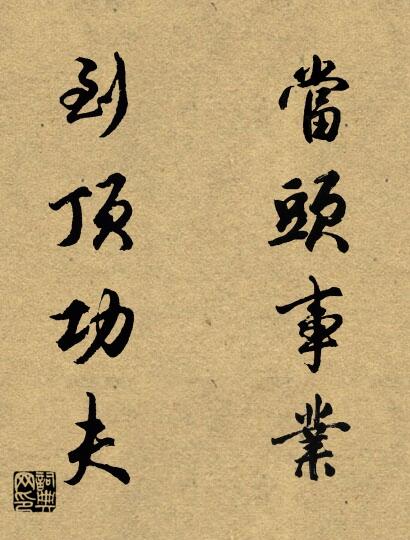 當頭事業
到頂功夫
詞典網印